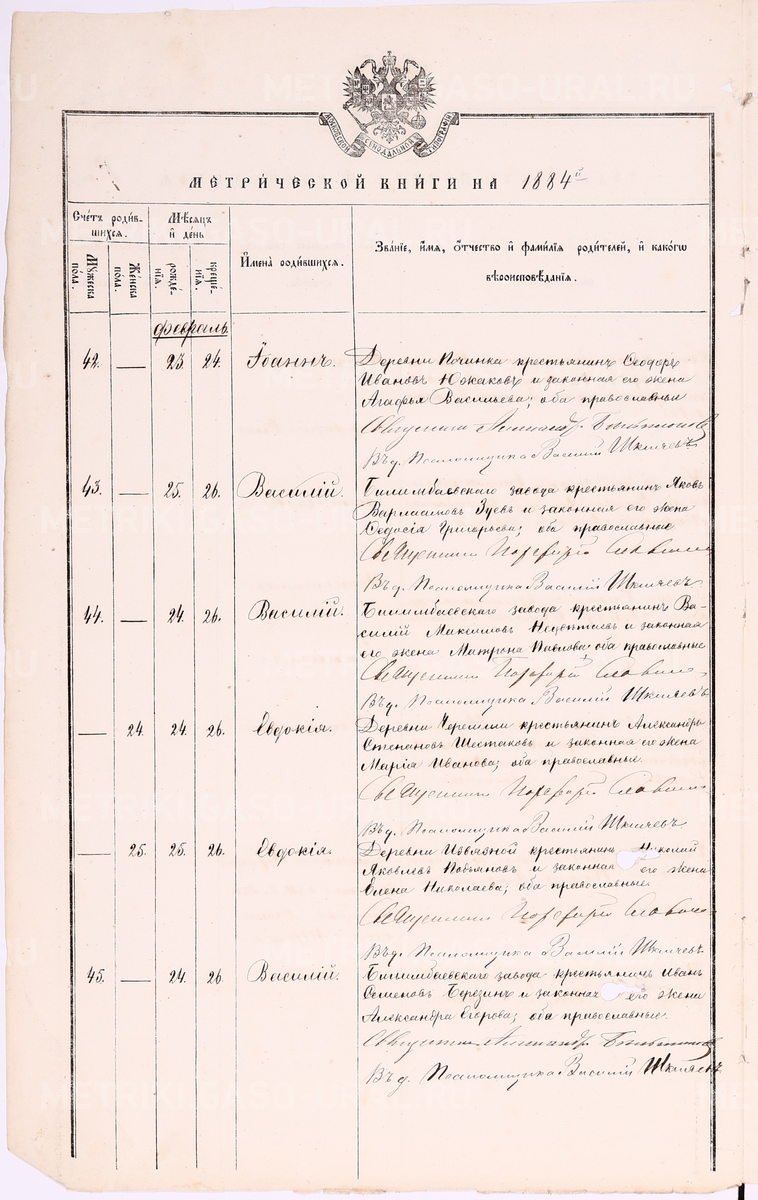 МОСКОВСКОЙ СѴНОДАЛЬНОЙ ТИПОГРАФІИ
МЕТРИ́ЧЕСКОЙ КНИ́ГИ НА 1884й
Сче́тъ роди́в-
шихся.
Мѣ́сяцъ
и҆ де́нь
Мꙋ́жеска
по́ла.
Же́нска
по́ла.
рожде́-
нїѧ.
креще́-
нїѧ.
И҆мена̀ роди́вшихся.
Зва́нїе, и҆́мѧ, ѻ҆́тчество и҆ фами́лїѧ роди́телей, и҆ како́гѡ
вѣроисповѣ́данїѧ.
февраль
42. — 23 24. Іоаннъ. Деревни Починка крестьянинъ Ѳеодоръ
Ивановъ Южаковъ и законная его жена
Агафья Васильева; оба православные
Священникъ Александръ
Въ д. Псаломщика Василій Шкляевъ
43. — 25. 26. Василій. Билимбаевскаго завода крестьянинъ Яковъ
Варлаамовъ Зуевъ и законная его жена
Ѳедосія Григорьева; оба православные
Священникъ Порфирій Славнинъ
Въ д. Псаломщика Василій Шкляевъ
44. — 24. 26. Василій. Билимбаевскаго завода крестьянинъ Ва-
силій Максимовъ и законная
его жена Матрона Павлова; оба православные
Священникъ Порфирій Славнинъ
Въ д. Псаломщика Василій Шкляевъ
— 24. 24. 26. Евдокія. Деревни Черемши крестьянинъ Александръ
Степановъ Шестаковъ и законная его жена
Марія Иванова; оба православные.
Священникъ Порфирій Славнинъ
Въ д. Псаломщика Василій Шкляевъ
— 25. 25. 26. Евдокія. Деревни Извязной крестьянинъ Николай
Яковлевъ и законная его жена
Елена Николаева; оба православные.
Священникъ Порфирій Славнинъ
Въ д. Псаломщика Василій Шкляевъ
45. — 24. 26. Василій. Билимбаевскаго завода крестьянинъ Иванъ
Семеновъ Березинъ и законная его жена
Александра Егорова; оба православные.
Священникъ Александръ
Въ д. Псаломщика Василій Шкляевъ